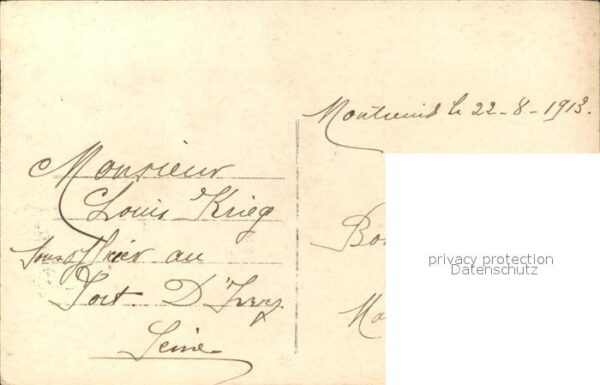 Montreuil le 22-8-1913.
Monsieur
Louis Krieg
Sous officier au
Fort D'Ivry
Seine
Bon
Ma
privacy protection
Datenschutz